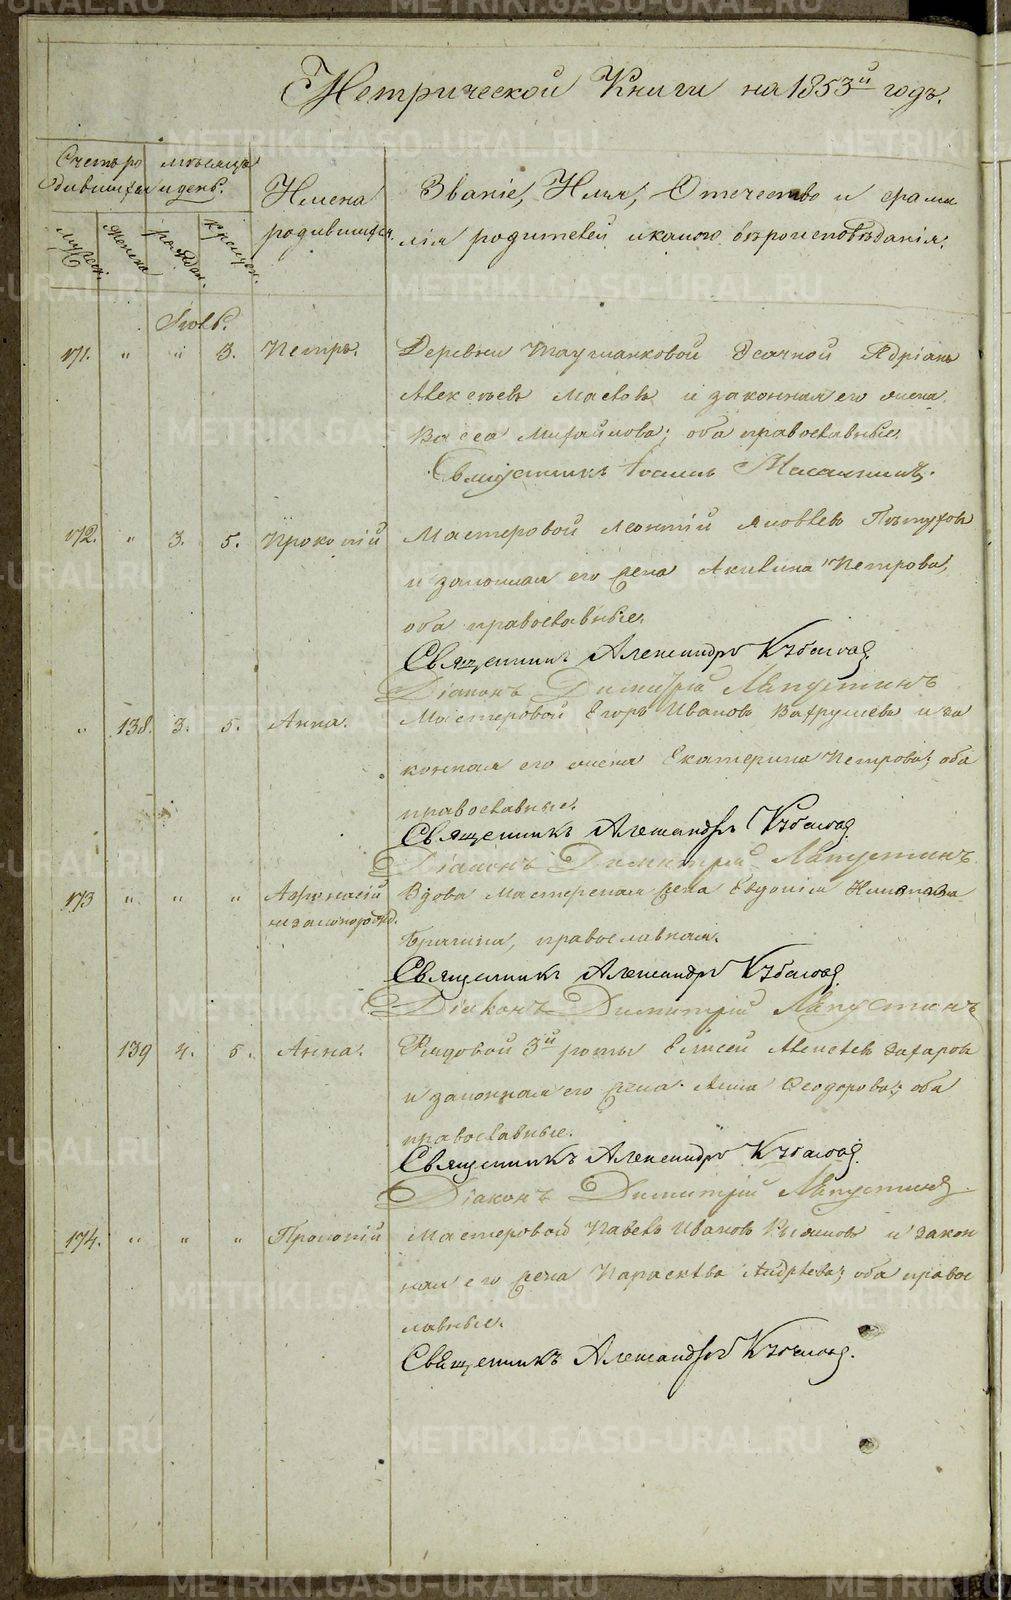 Метрической Книги на 1853й годъ.
Счетъ ро мѣсяцъ
дившихся и день.
Имена
родившихся.
Званіе, Имя, Отечество и фами
лія родителей и какого вѣроисповѣданія.
Мужеск. Женска рожден. крещен.
Іюль.
171. " " 3. Петръ. Деревни Адріанъ
Алексѣевъ Масловъ и законная его жена
Васса Михайлова; оба православные.
Священникъ Іоаннъ
172. " 3. 5. Прокопій Мастеровой Леонтій Яковлевъ Пѣтуховъ
и законная его жена Акилина Петрова,
оба православные.
Священникъ Александръ
Діаконъ Димитрій Лапустинъ
" 138. 3. 5. Анна. Мастеровой Егоръ Ивановъ Вахрушевъ и за
конная его жена Екатерина Петрова; оба
православные.
Священникъ Александръ
Діаконъ Димитрій Лапустинъ
173 " " " Афанасій незаконорожд. Вдова Мастерская жена Евдокія
Брагина, православная.
Священникъ Александръ
Діаконъ Димитрій Лапустинъ
139 4. 5. Анна. Рядовой 3й роты Елисей Захаровъ
и законная его жена Анна Ѳеодорова; оба
православные.
Священникъ Александръ
Діаконъ Димитрій Лапустинъ
174. " " " Прокопій Мастеровой Павелъ Ивановъ и закон
ная его жена Параскева Андрѣева; оба право
славные.
Священникъ Александръ
METRIKI.GASO-URAL.RU